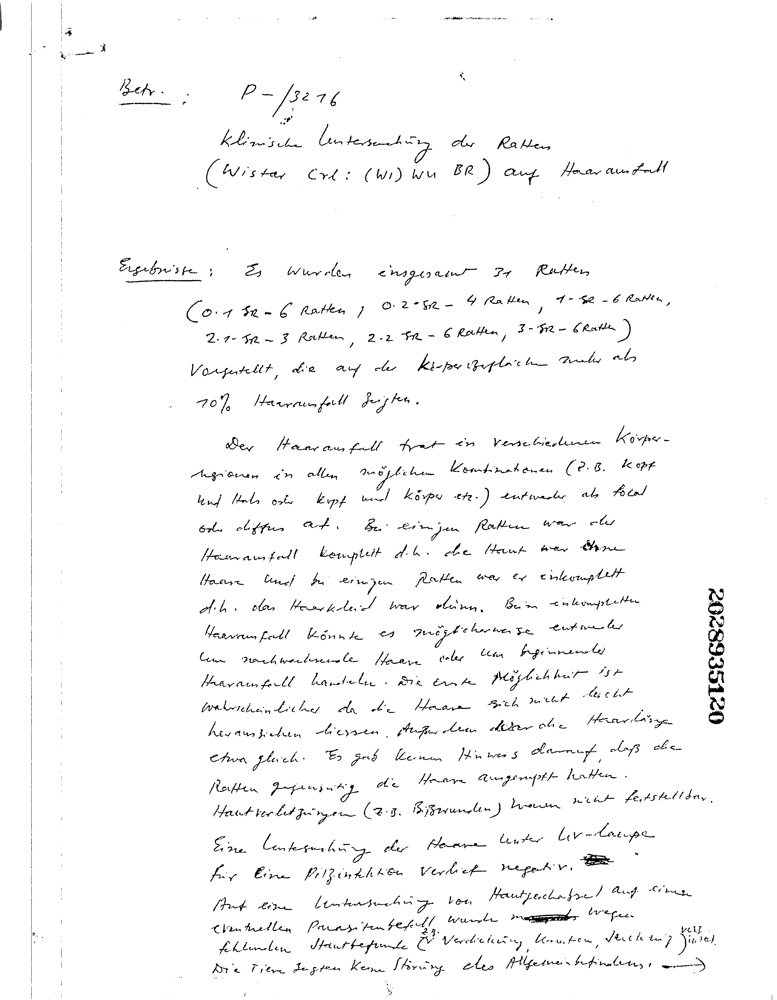 Betr. : P-/3216
Klinische Untersuchung der Ratten
(Wistar Crl: (WI) WU BR) auf Haarausfall
Ergebnisse : Es wurden insgesamt 31 Ratten
(0.1 SR - 6 Ratten, 0.2-SR - 4 Ratten, 1-SR - 6 Ratten,
2.1-SR - 3 Ratten, 2.2 SR - 6 Ratten, 3-SR - 6 Ratten)
vorgestellt, die auf der Körperoberfläche mehr als
10% Haarausfall zeigten.
Der Haarausfall trat in verschiedenen Körper-
regionen in allen möglichen Kombinationen (z.B. Kopf
und Hals oder Kopf und Körper etc.) entweder als focal
oder diffus auf. Bei einigen Ratten war der
Haarausfall komplett d.h. die Haut war ohne
Haare und bei einigen Ratten war er inkomplett
d.h. das Haarkleid war dünn. Beim inkompletten
Haarausfall könnte es möglicherweise entweder
um nachwachsende Haare oder um beginnenden
Haarausfall handeln. Die erste Möglichkeit ist
wahrscheinlicher da die Haare sich nicht leicht
herausziehen liessen. Außerdem die Haarlänge
etwa gleich. Es gab keinen Hinweis darauf, daß die
Ratten gegenseitig die Haare ausgerupft hatten.
Hautverletzungen (z.B. Bißwunden) waren nicht feststellbar.
Eine Untersuchung der Haare unter UV-Lampe
für eine Pilzinfektion verlief negativ.
Auf eine Untersuchung von Hautgeschabsel auf einen
eventuellen Parasitenbefall wurde wegen
fehlenden Hautbefunde (z.B. Verdickung, Knoten, ) verzichtet.
Die Tiere zeigten keine Störung des Allgemeinbefindens. →
2028935120